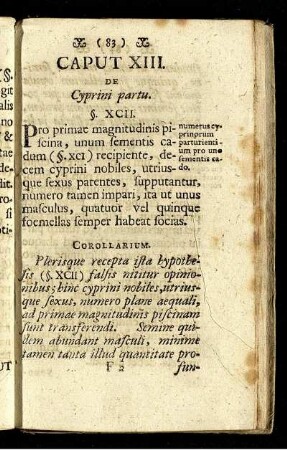 (83)
CAPUT XIII.
DE
Cyprini partu.
§. XCII.
Pro primae magnitudinis pi-
scina, unum sementis ca-
dum (§. XCI) recipiente, de-
cem cyprini nobiles, utrius-
que sexus parentes, supputantur,
numero tamen impari, ita ut unus
masculus, quatuor vel quinque
foemellas semper habeat socias.
numerus cy-
prinorum
parturienti-
um pro uno
sementis ca-
do.
COROLLARIUM.
Plerisque recepta ista hypothe-
sis (§. XCII) falsis nititur opinio-
nibus; hinc cyprini nobiles, utrius-
que sexus, numero plane aequali,
ad primae magnitudinis piscinam
sunt transferendi. Semine qui-
dem abundant masculi, minime
tamen tanta illud quantitate pro-
F 2 fun-